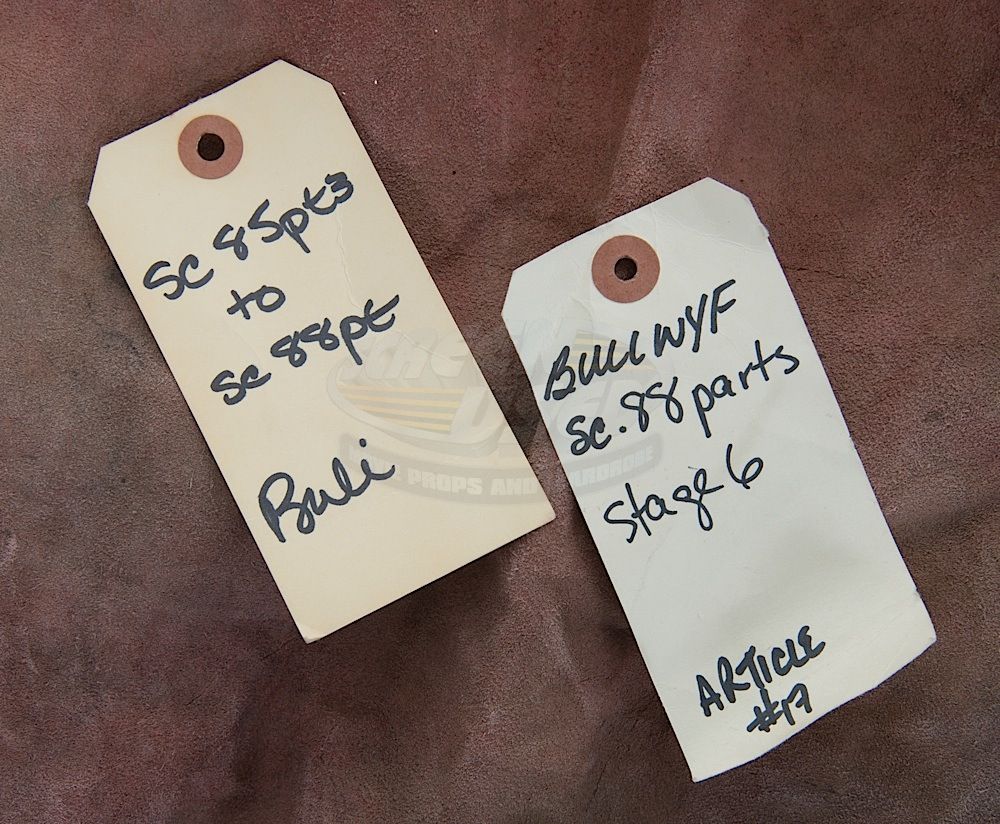 SC 85pt3
to
SC 88pt
Buli
BULLWYF
SC. 88 parts
Stage 6
ARTICLE
#17
PROPS AND WARDROBE